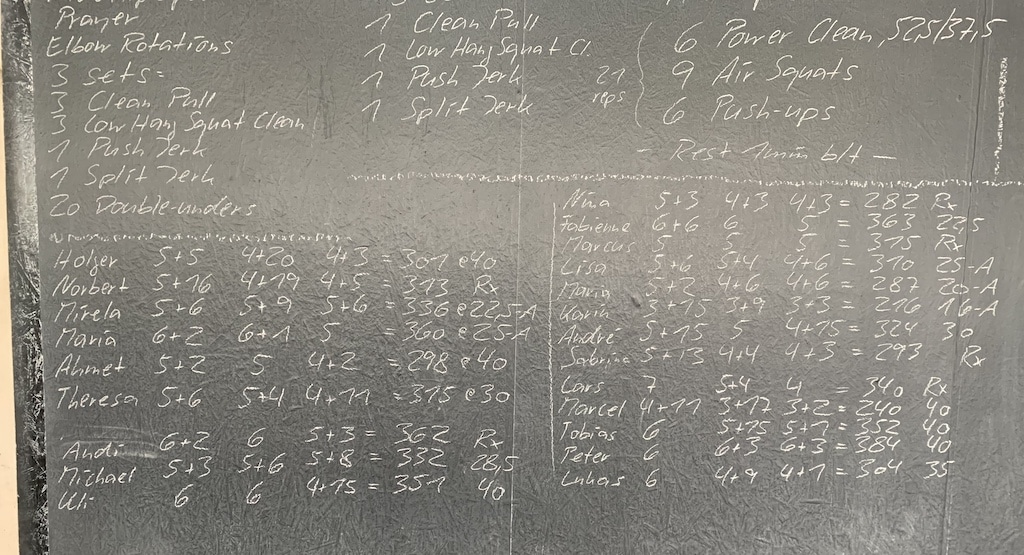 Prayer
Elbow Rotations
3 sets:
3 Clean Pull
3 Low Hang Squat Clean
1 Push Jerk
1 Split Jerk
20 Double-unders
1 Clean Pull
1 Low Hang Squat Cl.
1 Push Jerk
1 Split Jerk
21 reps
6 Power Clean, 52,5/37,5
9 Air Squats
6 Push-ups
- Rest 1min b/t -
Holger 5+5 4+20 4+3 = 301 @40
Norbert 5+16 4+19 4+5 = 313 Rx
Mirela 5+6 5+9 5+6 = 336 @22,5-A
Maria 6+2 6+1 5 = 360 @25-A
Ahmet 5+2 5 4+2 = 298 @40
Theresa 5+6 5+4 4+11 = 315 @30
Andi 6+2 6 5+3 = 362 Rx
Michael 5+3 5+6 5+8 = 332 28,5
Uli 6 6 4+15 = 351 40
Nina 5+3 4+3 4+3 = 282 Rx
Fabienne 6+6 6 5 = 363 22,5
Marcus 5 5 5 = 315 Rx
Lisa 5+6 5+4 4+6 = 310 25-A
Maria 5+2 4+6 4+6 = 287 20-A
Karin 3+15 3+9 3+3 = 216 16-A
André 5+15 5 4+15 = 324 30
Sabrina 5+13 4+4 4+3 = 293 Rx
Lars 7 5+4 4 = 340 Rx
Marcel 4+11 3+17 3+2 = 240 40
Tobias 6 5+15 5+1 = 352 40
Peter 6 6+3 6+3 = 384 40
Lukas 6 4+9 4+1 = 304 35